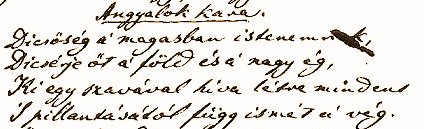 Angyalok kara.
Dicsőség a magasban istenemnek,
Dicsérje őt a föld és a nagy ég,
Ki egy szavával híva létre mindent
S pillantásától függ ismét a vég.